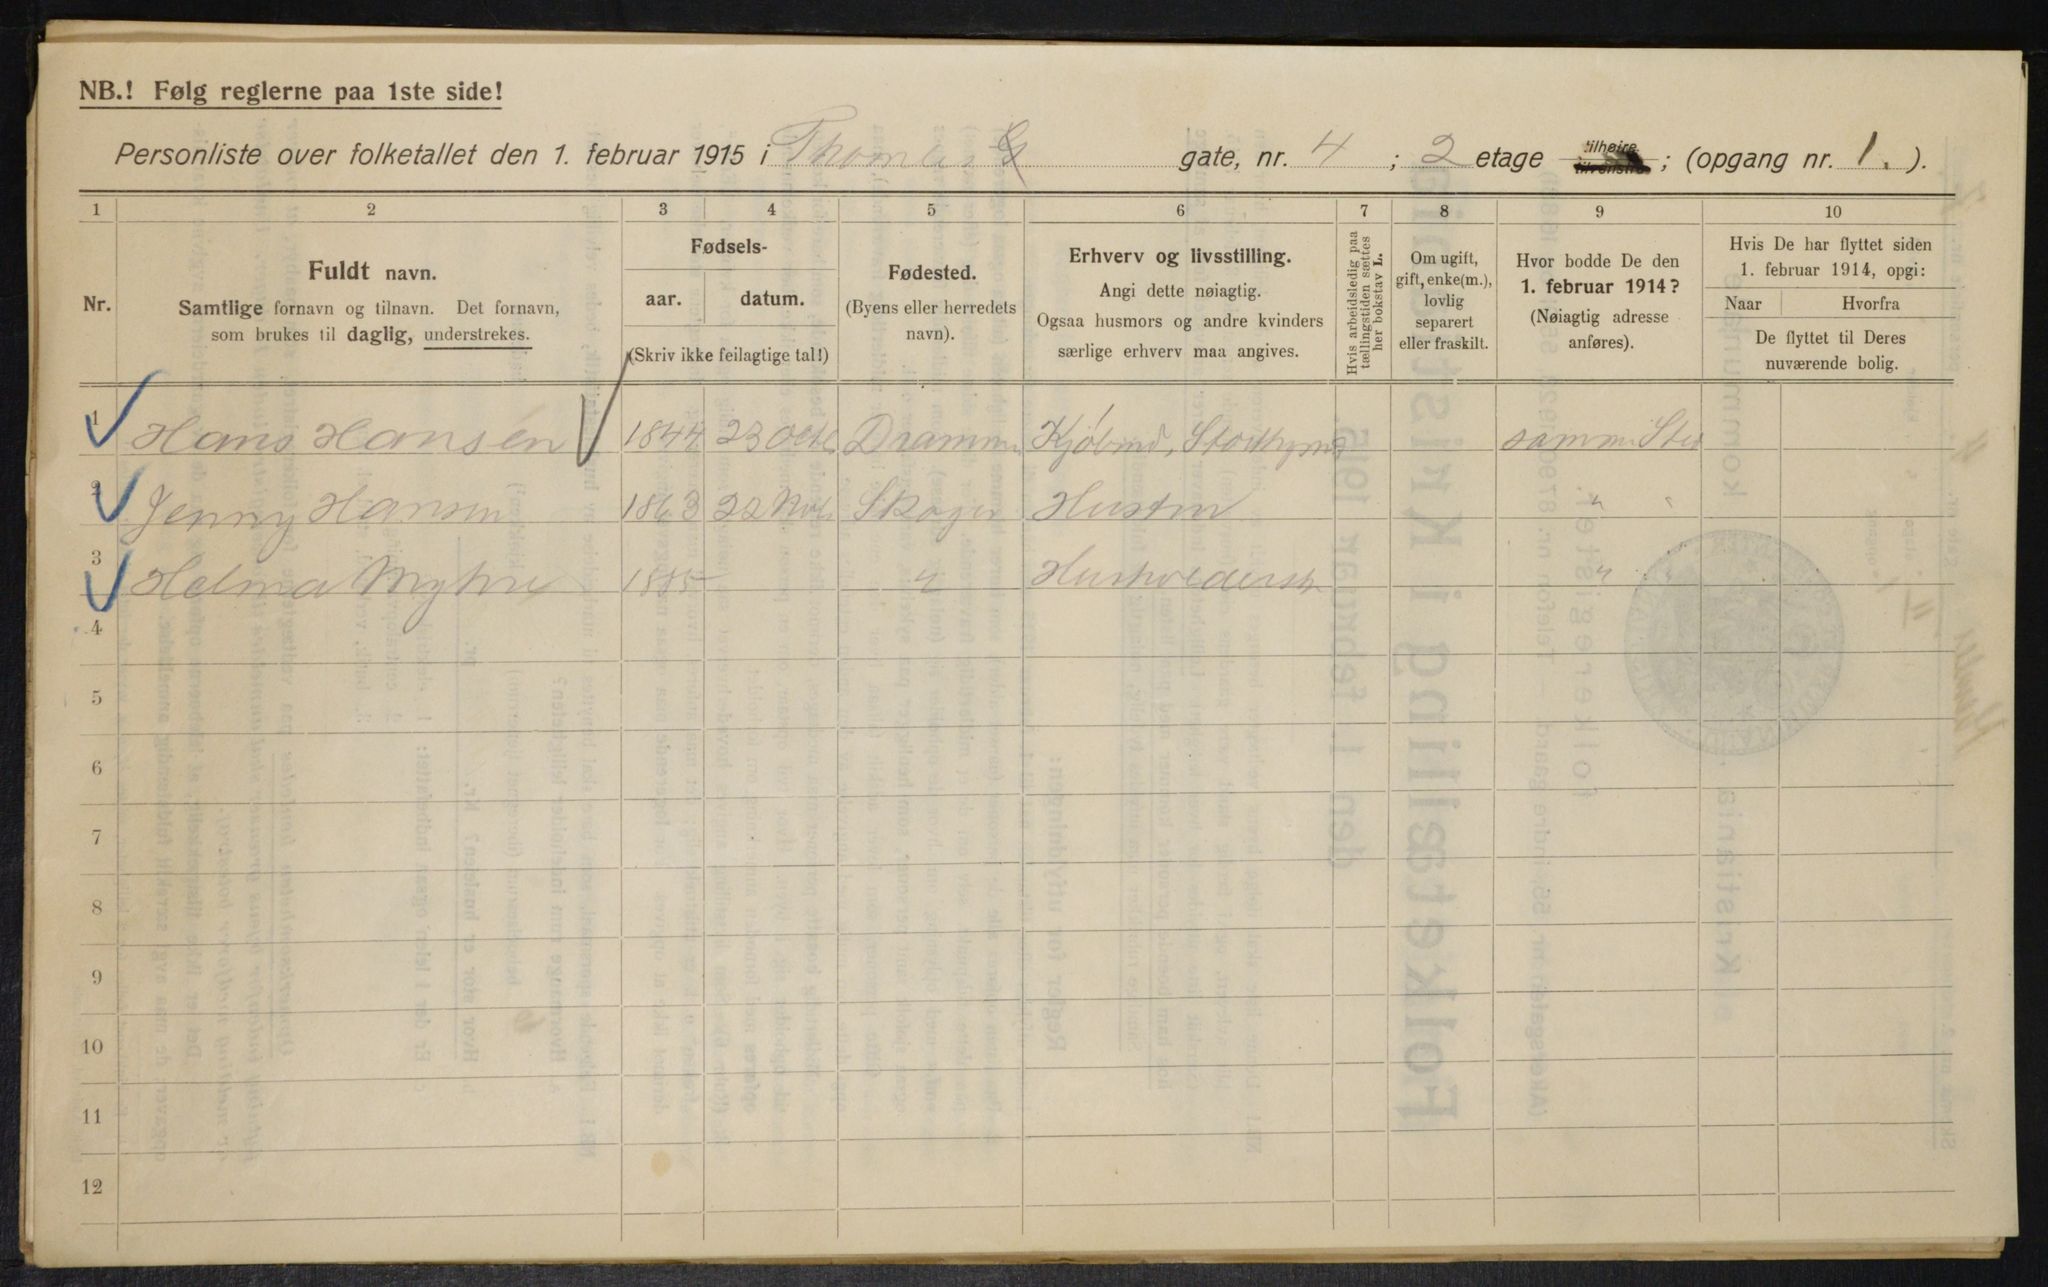 NB.! Følg reglerne paa 1ste side!
Personliste over folketallet den 1. februar 1915 i Thomles G gate, nr. 4 ; 2 etage tilhøire tilvenstre ; (opgang nr. 1. ).
1 2 3 4 5 6 7 8 9 10
Nr.
Fuldt navn.
Samtlige fornavn og tilnavn. Det fornavn,
som brukes til daglig, understrekes.
Fødsels-
aar. datum.
(Skriv ikke feilagtige tal!)
Fødested.
(Byens eller herredets
navn).
Erhverv og livsstilling.
Angi dette nøiagtig.
Ogsaa husmors og andre kvinders
særlige erhverv maa angives.
Hvis arbeidsledig paa
tællingstiden sættes
her bokstav L.
Om ugift,
gift, enke(m.),
lovlig
separert
eller fraskilt.
Hvor bodde De den
1. februar 1914?
(Nøiagtig adresse
anføres).
Hvis De har flyttet siden
1. februar 1914, opgi:
Naar Hvorfra
De flyttet til Deres
nuværende bolig.
1 Hans Hansen 1844 23 Octe Drammen Kjøbmd, samme Sted
2 Jenny Hansen 1863 22 Nov Skoger Hustru " "
3 Helma Myhre 1885 " " "
4
5
6
7
8
9
10
11
12